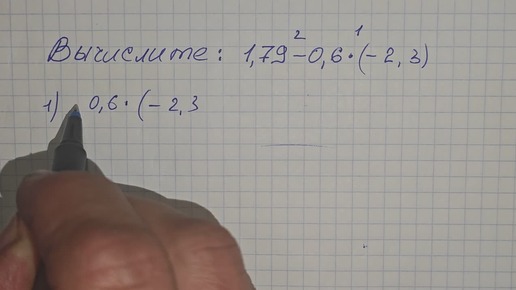 2 1
Вычислите: 1,79-0,6·(-2,3)
1) 0,6·(-2,3